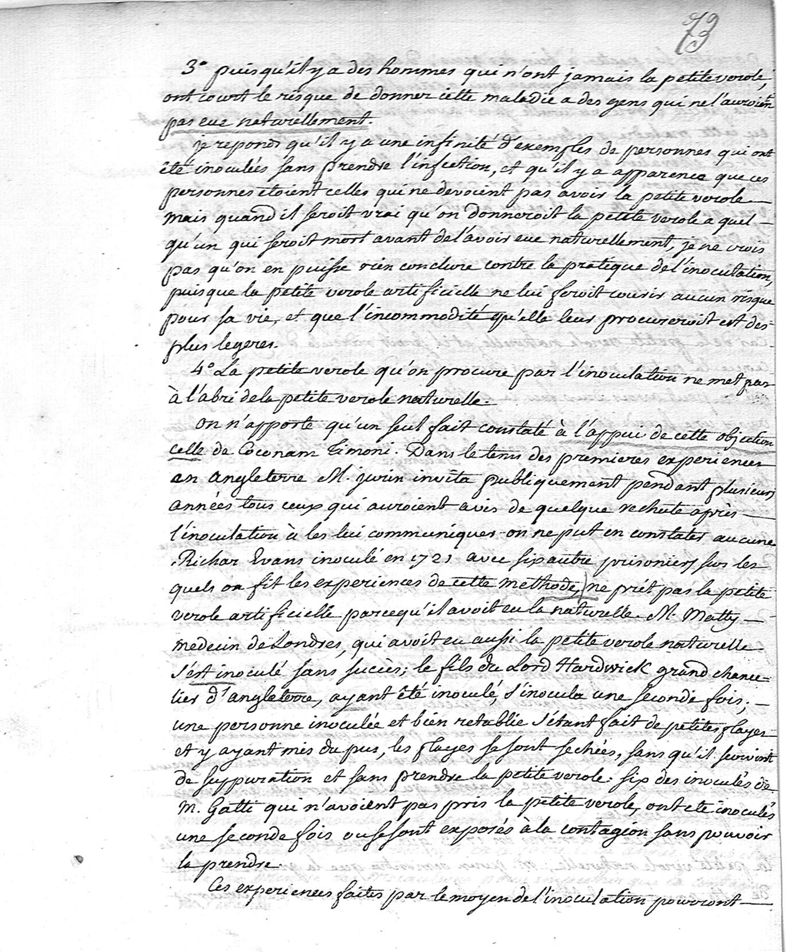 73
3.° puisqu'il y a des hommes qui n'ont jamais la petite verole,
ont court le risque de donner cette maladie a des gens qui ne l'auroient
pas eue naturellement.
je reponds qu'il y a une infinité d'exemples de personnes qui ont
été inoculés sans prendre l'infection, et qu'il y a apparence que ces
personnes etoient celles qui ne devoient pas avoir la petite verole
mais quand il seroit vrai qu'on donneroit la petite verole a quel-
qu'un qui seroit mort avant de l'avoir eue naturellement, je ne crois
pas qu'on en puisse rien conclure contre la pratique de l'inoculation,
puisque la petite verole artificielle ne lui feroit courir aucun risque
pour sa vie, et que l'incommodité qu'elle leur procureroit est des
plus legeres.
4.° La petite verole qu'on procure par l'inoculation ne met pas
à l'abri de la petite verole naturelle.
on n'apporte qu'un seul fait constaté à l'appui de cette objection
celle de Coconam Timoni. Dans le tems des premieres experiences
en angleterre M. jurin invita publiquement pendant plusieurs
années tous ceux qui auroient avis de quelque rechute après
l'inoculation à les lui communiquer on ne put en constater aucune
Richar Evans inoculé en 1721 avec six autre prisoniers sur les
quels on fit les experiences de cette methode, ne prit pas la petite
verole artificielle parcequ'il avoit eu la naturelle M. Matty
medecin de Londres, qui avoit eu aussi la petite verole naturelle
s'est inoculé sans succès; le fils du Lord Hardwick grand chance-
lier d'angleterre, ayant été inoculé, s'inocula une seconde fois;
une personne inoculée et bien retablie s'étant fait de petites playes
et y ayant mis du pus, les playes se sont sechées, sans qu'il survint
de suppuration et sans prendre la petite verole. six des inoculés de
M. Gatti qui n'avoient pas pris la petite verole, ont eté inoculés
une seconde fois ou se sont exposés à la contagion sans pouvoir
la prendre
Ces experiences faites par le moyen de l'inoculation pourront